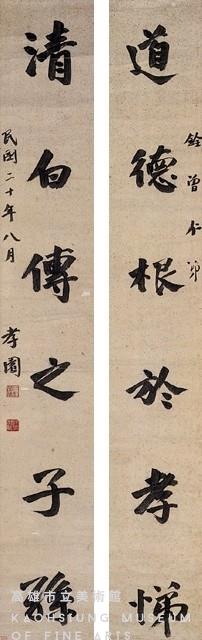 道德根於孝悌
銓曾仁弟
清白傳之子孫
民國二十年八月
孝園
高雄市立美術館
KAOHSIUNG MUSEUM
OF FINE ARTS